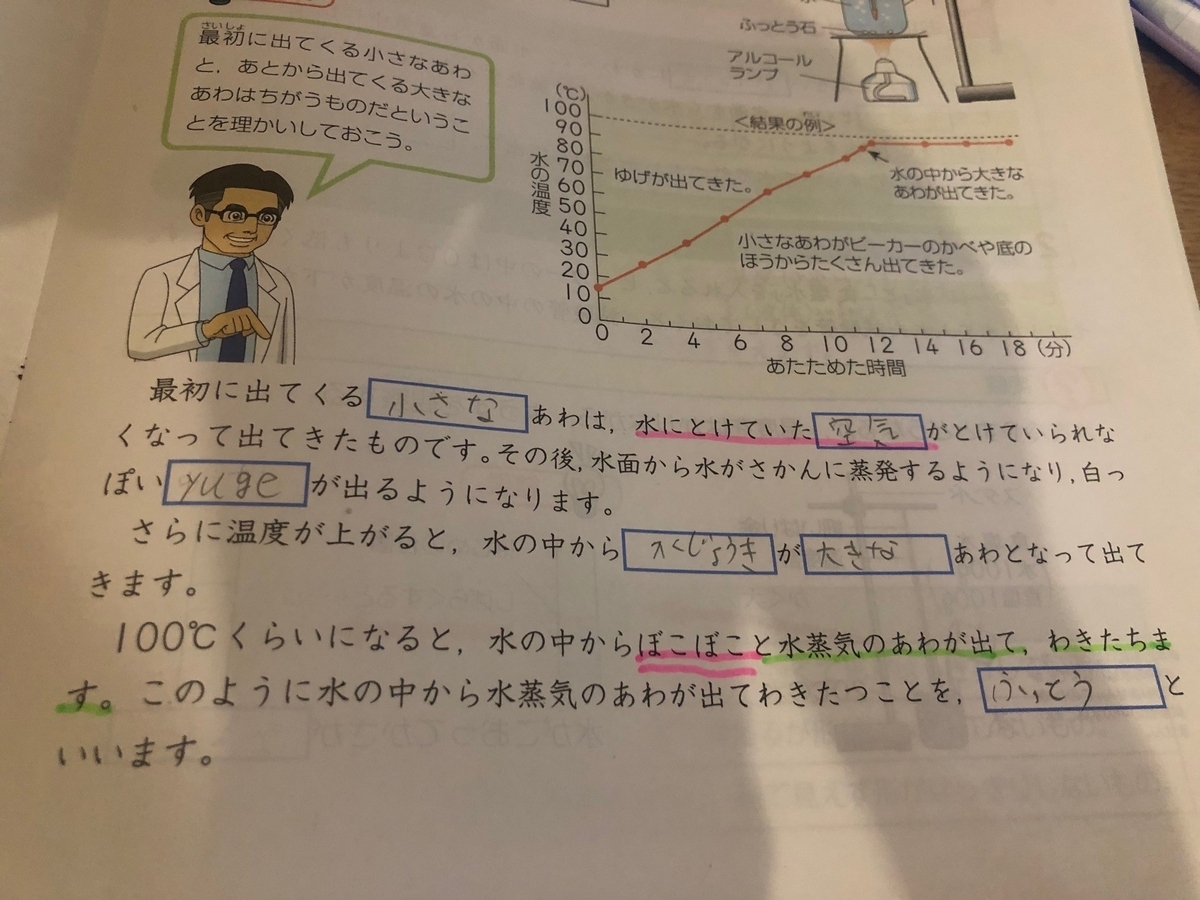 さいしょ
最初に出てくる小さなあわ
と，あとから出てくる大きな
あわはちがうものだというこ
とを理かいしておこう。
ふっとう石
アルコール
ランプ
(℃)
100
90
80
70
60
50
40
30
20
10
0
水の温度
<結果の例>
ゆげが出てきた。
水の中から大きな
あわが出てきた。
小さなあわがビーカーのかべや底の
ほうからたくさん出てきた。
0 2 4 6 8 10 12 14 16 18 (分)
あたためた時間
最初に出てくる小さなあわは，水にとけていた空気がとけていられな
くなって出てきたものです。その後，水面から水がさかんに蒸発するようになり，白っ
ぽいyugeが出るようになります。
さらに温度が上がると，水の中から が大きなあわとなって出て
きます。
100℃くらいになると，水の中からぼこぼこと水蒸気のあわが出て，わきたちま
す。このように水の中から水蒸気のあわが出てわきたつことを，ふっとうと
いいます。